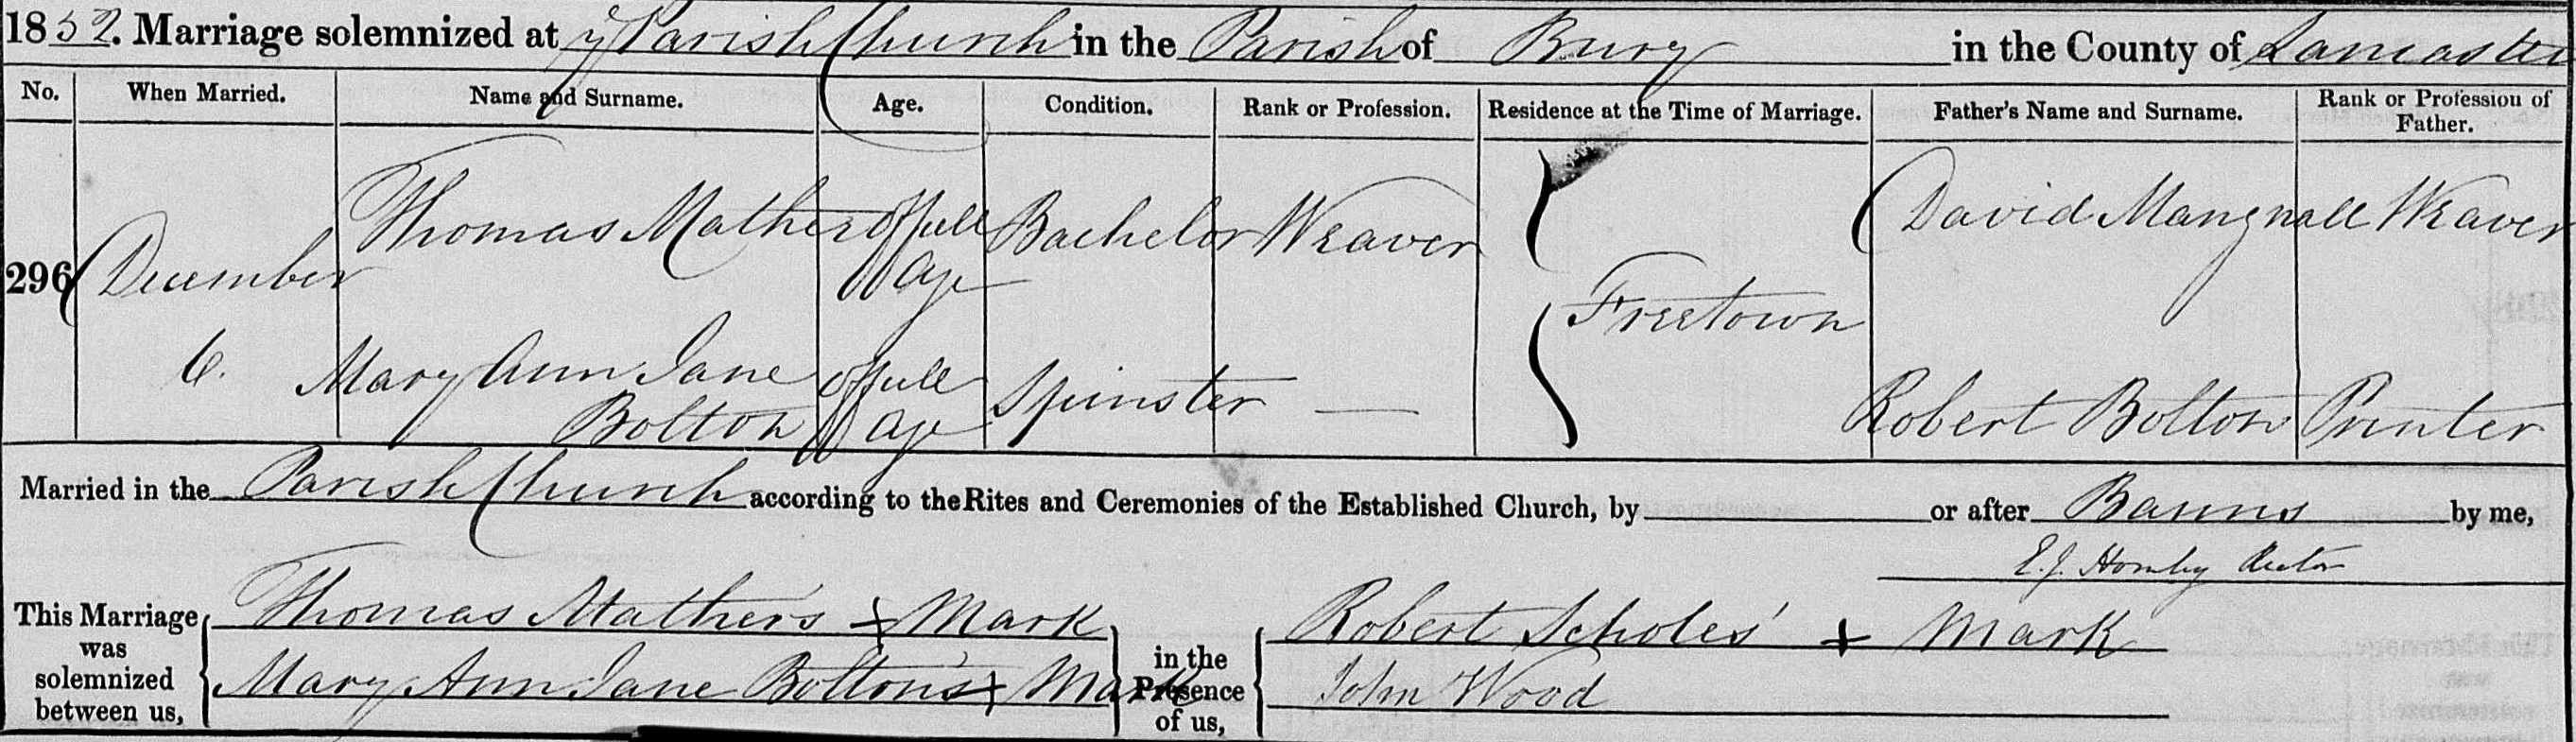 1852. Marriage solemnized at ye Parish Church in the Parish of Bury in the County of Lancaster
No. When Married. Name and Surname. Age. Condition. Rank or Profession. Residence at the Time of Marriage. Father's Name and Surname. Rank or Profession of Father.
296 December 6. Thomas Mather Of full Age Bachelor Weaver Freetown David Mangnall Weaver
Mary Ann Jane Bolton Of full Age Spinster — Robert Bolton Printer
Married in the Parish Church according to the Rites and Ceremonies of the Established Church, by or after Banns by me,
E. J. Hornby Rector
This Marriage was solemnized between us, Thomas Mather's + Mark
Mary Ann Jane Bolton's + Mark
in the Presence of us, Robert Scholes' + Mark
John Wood